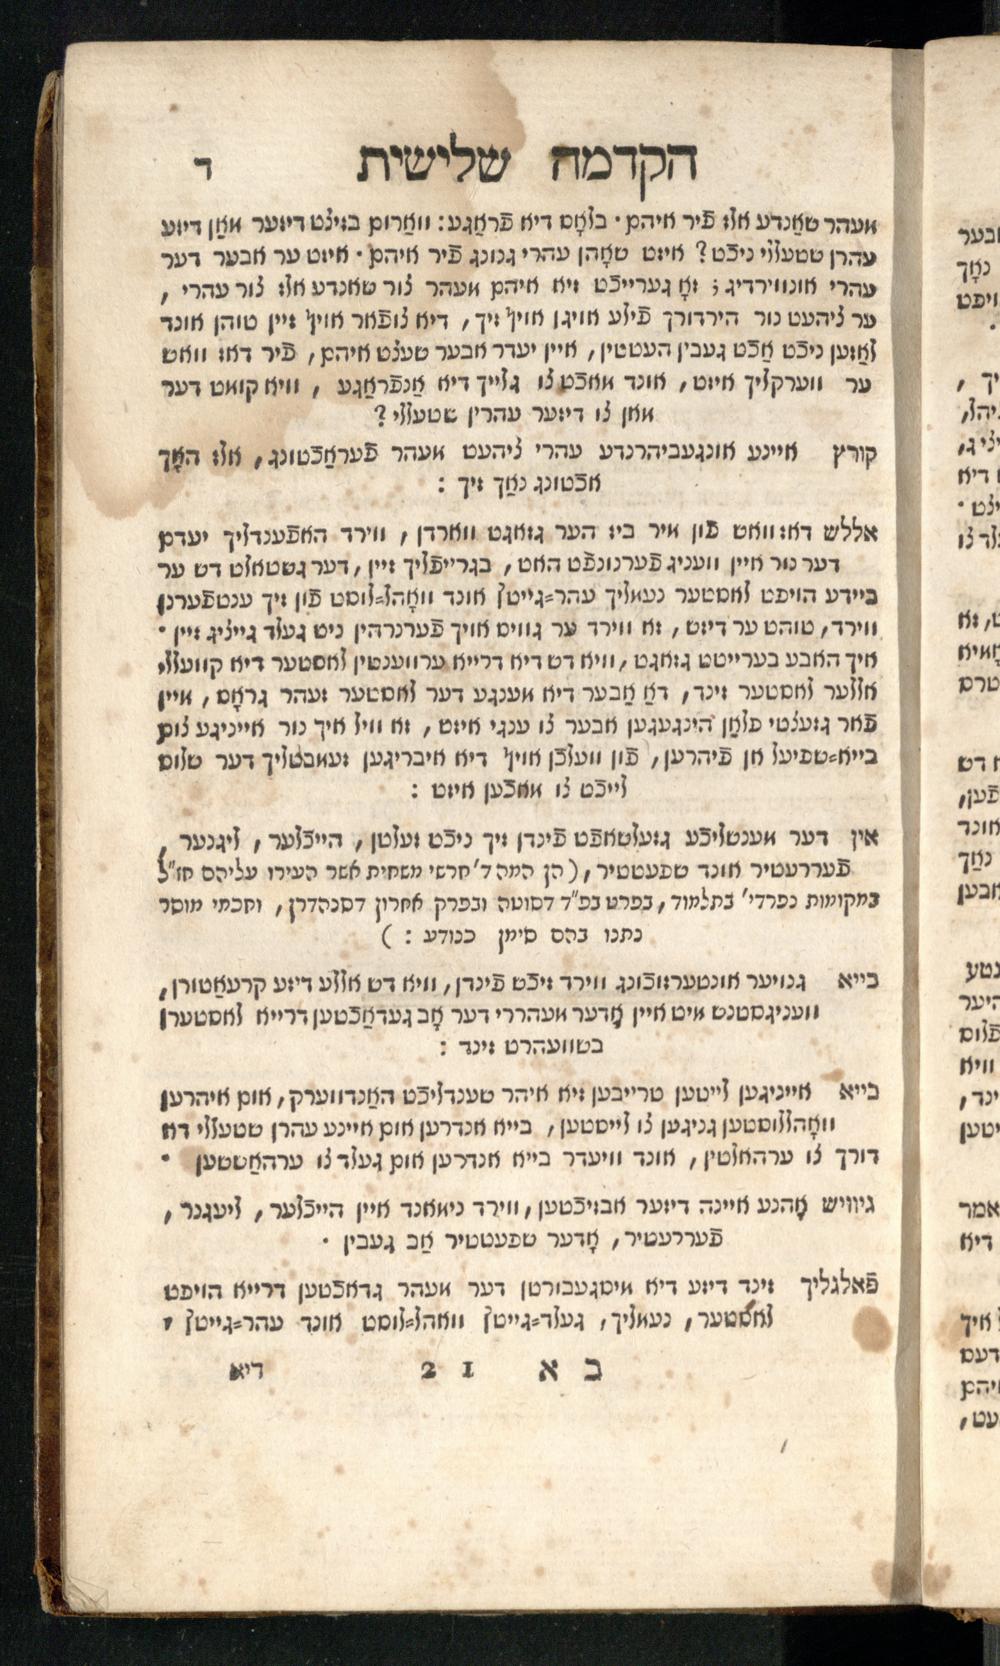 הקדמה שלישית ד
מעהר שאַנדע אלז פֿיר איהם · בלאָס דיא פֿראַגע : ווארום בזיצט דיזער מאַן דיזע
עהרן שטעללי ניכֿט ? איזט שאָהן עהרי גנונג פֿיר איהם · איזט ער אבער דער
עהרי אונווירדיג ; זאָ גערייכֿט זיא איהם מעהר צור שאנדע אלז צור עהרי ,
ער ציהעט נור הירדורך פֿילע אויגן אויף זיך , דיא צופֿאר אויף זיין טוהן אונד
לאַזען ניכֿט אַכֿט געבין העטטין , איין יעדר אבער שעצט איהם , פֿיר דאז וואש
ער ווערקליך איזט , אונד מאכֿט צו גלייך דיא אַנפֿראַגע , וויא קומט דער
מאן צו דיזער עהרין שטעללי ?
קורץ איינע אונגעביהרנדע עהרי ציהעט מעהר פֿעראַכֿטונג , אלז האָך
אכֿטונג נאַך זיך :
אללש דאז וואש פֿון מיר ביז הער גזאגט ווארדן , ווירד האפֿענדליך יעדם
דער נור איין וועניג פֿערנונפֿט האט , בגרייפֿליך זיין , דער גשטאלט דש ער
ביידע הויפט לאסטער נעמליך עהר=גייטץ אונד וואָהל=לוסט פֿון זיך ענטפֿערנן
ווירד , טוהט ער דיזש , זא ווירד ער גוויס אויך פֿערנרהין ניט געלד גייציג זיין ·
איך האבע בערייטש גזאגט , וויא דש דיא דרייא ערווענטין לאסטער דיא קוועללי
אללער לאסטער זינד , דאַ אַבער דיא מענגע דער לאסטער זעהר גראָס , איין
פֿאר גזעצטי פלאַן הינגעגען אבער צו ענגי איזט , זא וויל איך נור אייניגע צום
בייא=שפיעל אן פֿיהרען , פֿון וועלכֿן אויף דיא איבריגען זעמבטליך דער שלוס
לייכֿט צו מאכֿען איזט :
אין דער מענשליכֿע גזעלשאפֿט פֿינדן זיך ניכֿט זעלטן , הייכֿלער , ליגנער ,
פֿעררעטיר אונד שפעטטיר , ( הן המה ד' חרשי משחית אשר העירו עליהם חז"ל
במקומות נפרדי' בתלמוד , בפרט בפ"ד דסוטה ובפרק אחרון דסנהדרן , וחכמי מוסר
נתנו בהם סימן כנודע : )
בייא גנויער אונטערזוכֿונג ווירד זיכֿט פֿינדן , וויא דש אללע דיזע קרעאַטורן ,
וועניגסטנש מיט איין אָדער מעהררי דער אָב געדאַכֿטען דרייא לאסטערן
בשוועהרט זינד :
בייא אייניגען לייטען טרייבען זיא איהר שענדליכֿט האַנדווערק , אום איהרען
וואָהללוסטען גניגען צו לייסטען , בייא אנדרען אום איינע עהרן שטעללי דא
דורך צו ערהאלטין , אונד וויעדר בייא אנדרען אום געלד צו ערהאַשטען ·
גיוויש אָהנע איינה דיזער אבזיכֿטען , ווירד נימאנד איין הייכֿלער , ליעגנר ,
פֿעררעטיר , אָדער שפעטטיר אַב געבין ·
פֿאלגליך זינד דיזע דיא מיסגעבורטן דער מעהר גדאכֿטען דרייא הויפט
לאסטער , נעמליך , געלד=גייטץ וואהל=לוסט אונד עהר=גייטץ ,
ב א 21 דיא